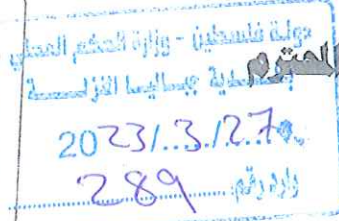 دولة فلسطين - وزارة الحكم المحلي
المحترم
بلدية عبسان الكبيرة
2023/.3./27
وارد رقم: 289